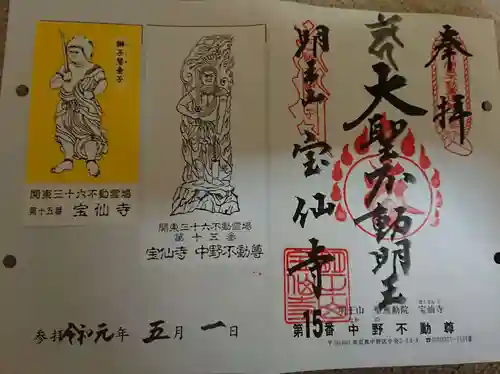 奉拝
大聖不動明王
明王山 宝仙寺
明王山 聖無動院 宝仙寺
第15番 中野不動尊
獅子慧童子
関東三十六不動霊場
第十五番 宝仙寺
関東三十六不動霊場
第十五番
宝仙寺 中野不動尊
参拝 令和元年 五月 一日